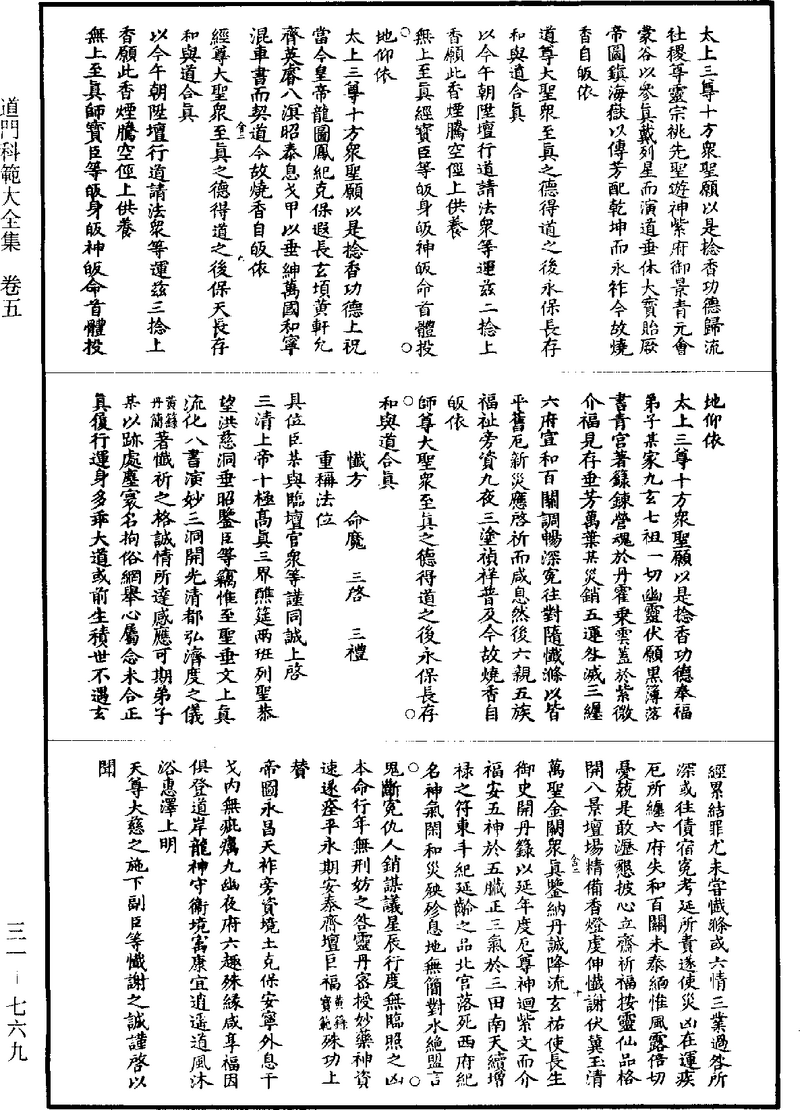 道門科範大全集　卷五
三一－七六九
太上三尊十方衆聖願以是捻香功德歸流
社稷尊靈宗祧先聖遊神紫府御景青元會
棠谷以參真戴列星而演道垂休大寶貽厥
帝圖鎮海嶽以傳芳配乾坤而永祚今故燒
香自皈依
道尊大聖衆至真之德得道之後永保長存
和與道合真
以今午朝陞壇行道請法衆等運茲二捻上
香願此香煙騰空徑上供養
無上至真經寶臣等皈身皈神皈命首體投
地仰依
太上三尊十方衆聖願以是捻香功德上祝
當今皇帝龍圖鳳紀克保遐長玄頊黃軒允
齊英睿八溟昭泰息戈甲以垂紳萬國和寧
混車書而契道今故燒香自皈依
經尊大聖衆至真之德得道之後保天長存
和與道合真
以今午朝陞壇行道請法衆等運茲三捻上
香願此香煙騰空徑上供養
無上至真師寶臣等皈身皈神皈命首體投
地仰依
太上三尊十方衆聖願以是捻香功德奉福
弟子某家九玄七祖一切幽靈伏願黑簿落
書青宮著籙鍊營魂於丹霍乘雲蓋於紫微
介福見存垂芳萬葉某災銷五運咎滅三纏
六府宣和百關調暢深冤往對隨懺滌以皆
平舊厄新災應啓祈而咸息然後六親五族
福祉旁資九夜三塗禎祥普及今故燒香自
皈依
師尊大聖衆至真之德得道之後永保長存
和與道合真
懺方　命魔　三啓　三禮
重稱法位
具位臣某與臨壇官衆等謹同誠上啓
三清上帝十極高真三界醮筵兩班列聖恭
望洪慈洞垂昭鑒臣等竊惟至聖垂文上真
流化八書演妙三洞開光清都弘濟度之儀
黃籙丹簡著懺祈之格誠情所達感應可期弟子
某以跡處塵寰名拘俗網舉心屬念未合正
真復行運身多乖大道或前生積世不遇玄
經累結罪尤未嘗懺滌或六情三業過咎所
深或往債宿冤考延所責遂使災凶在運疾
厄所纏六府失和百關未泰緬惟風露倍切
憂兢是敢瀝懇披心立齋祈福按靈仙品格
開八景壇場精備香燈虔伸懺謝伏冀玉清
萬聖金闕衆真鑒納丹誠降流玄祐使長生
御史開丹籙以延年度厄尊神迴紫文而介
福安五神於五臟正三氣於三田南天續增
祿之符東斗紀延齡之品北宮落死西府紀
名神氣閑和災殃殄息地無簡對水絶盟言
鬼斷冤仇人銷謀議星辰行度無臨照之凶
本命行年無刑妨之咎靈丹密授妙藥神資
速遂痊平永期安泰齊壇巨福黃籙寶範殊功上
贊
帝圖永昌天祚旁資境土克保安寧外息干
戈内無疵癘九幽夜府六趣殊緣咸享福因
俱登道岸龍神守衛境富康宜逍遥道風沐
浴惠澤上明
天尊大慈之施下副臣等懺謝之誠謹啓以
聞